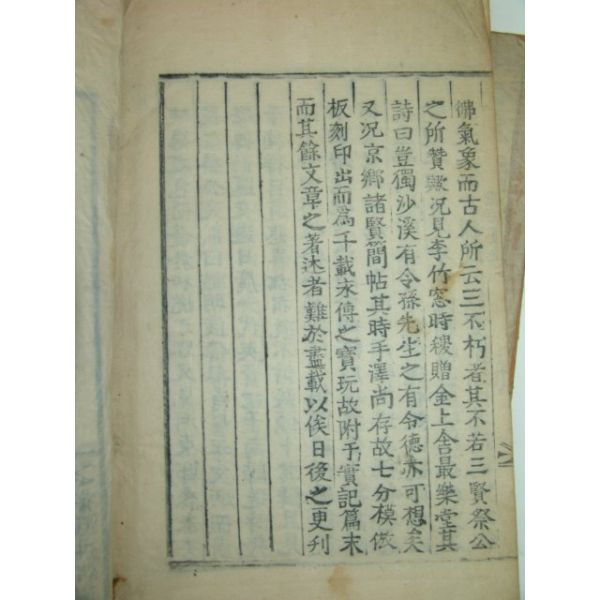 佛氣象而古人所云三不朽者其不若三賢祭公
之所贊歟况見李竹窓時稷贈金上舍最樂堂其
詩曰豈獨沙溪有令孫先生之有令德亦可想矣
又况京鄉諸賢簡帖其時手澤尚存故七分模倣
板刻印出而爲千載永傳之寶玩故附于實記篇末
而其餘文章之著述者難於盡載以俟日後之更刊